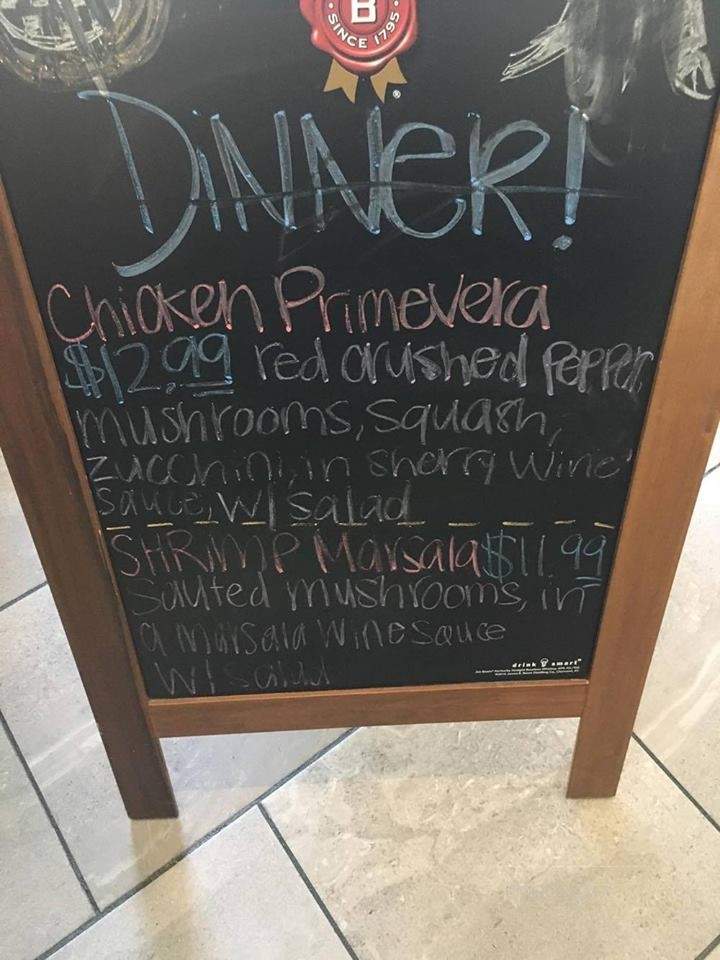 B
SINCE 1795
®
DINNER!
Chicken Primevera
$12.99 red crushed Pepper
mushrooms, squash,
zucchini, in sherry Wine
sauce, w/ salad
SHRIMP Marsala $11.99
Sauted mushrooms, in
a marsala Wine Sauce
w/ salad
drink smart